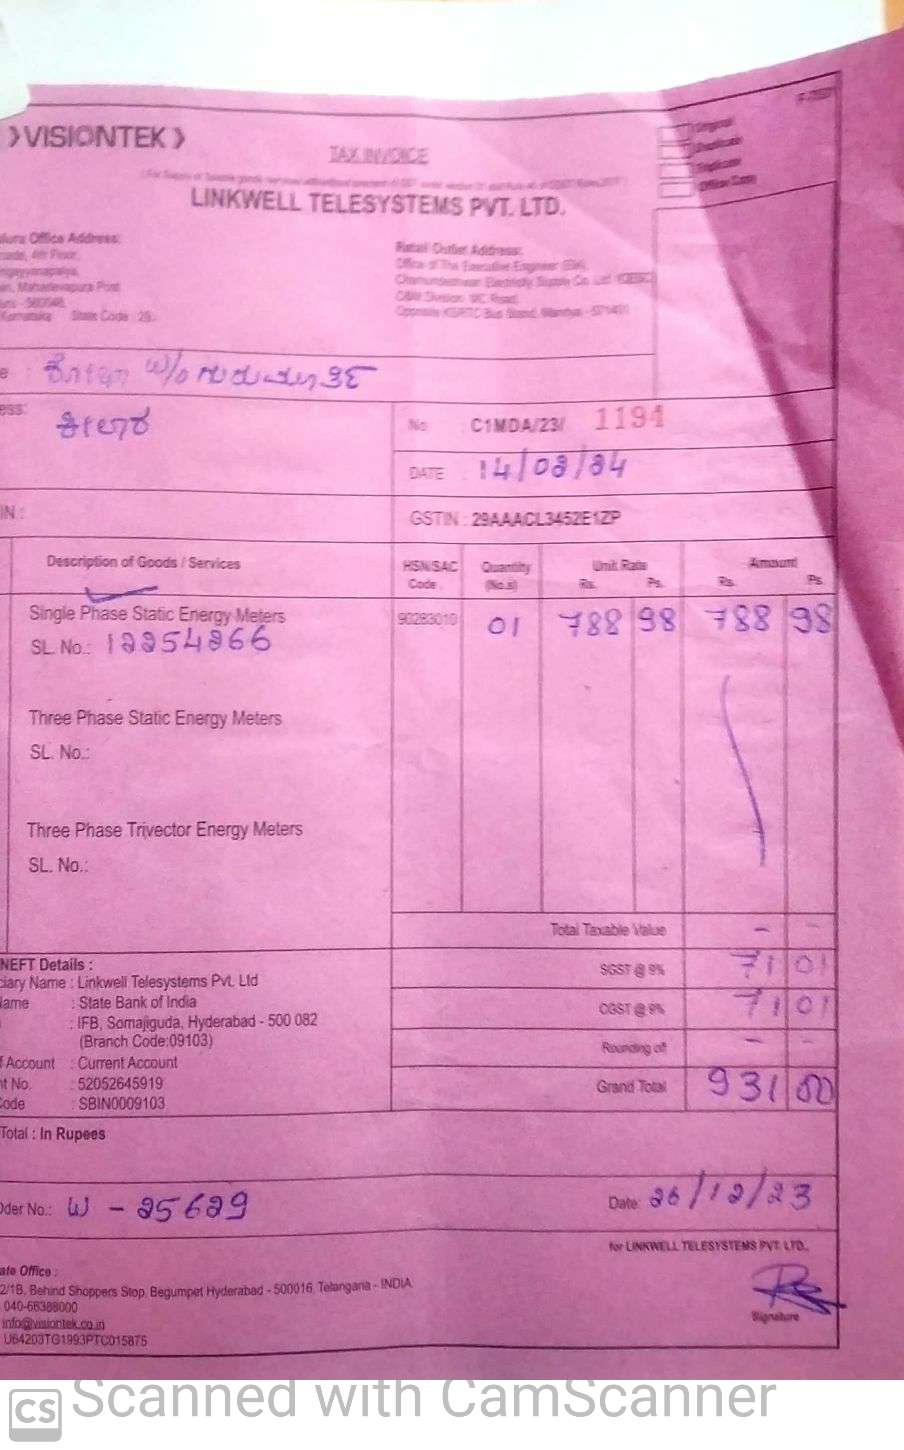 ❯VISIONTEK❯
TAX INVOICE
LINKWELL TELESYSTEMS PVT. LTD.
Office Address: Retail Outlet Address:
4th Floor, Office of The Executive Engineer
Chamundeshwari Electricity Supply Co. Ltd.
Mahadevapura Post
State Code : 29 Opposite KSRTC Bus Stand, Mandya - 571401
w/o
No C1MDA/23/ 1194
DATE : 14/02/24
IN :
GSTIN : 29AAACL3452E1ZP
Description of Goods / Services HSN/SAC Code Quantity (No.s) Unit Rate Rs. Ps. Amount Rs. Ps
Single Phase Static Energy Meters 90283010 01 788 98 788 98
SL. No.: 12254266
Three Phase Static Energy Meters
SL. No.:
Three Phase Trivector Energy Meters
SL. No.:
Total Taxable Value - -
NEFT Details : SGST @ 9% 71 01
ciary Name : Linkwell Telesystems Pvt. Ltd
lame : State Bank of India CGST @ 9% 71 01
: IFB, Somajiguda, Hyderabad - 500 082
(Branch Code:09103) Rounding off - -
f Account : Current Account
t No. : 52052645919 Grand Total 931 00
ode : SBIN0009103
Total : In Rupees
der No.: W - 25629 Date: 26/12/23
for LINKWELL TELESYSTEMS PVT. LTD.,
ate Office :
2/1B, Behind Shoppers Stop, Begumpet Hyderabad - 500016, Telangana - INDIA
040-66388000
info@visiontek.co.in Signature
U64203TG1993PTC015875
CS Scanned with CamScanner